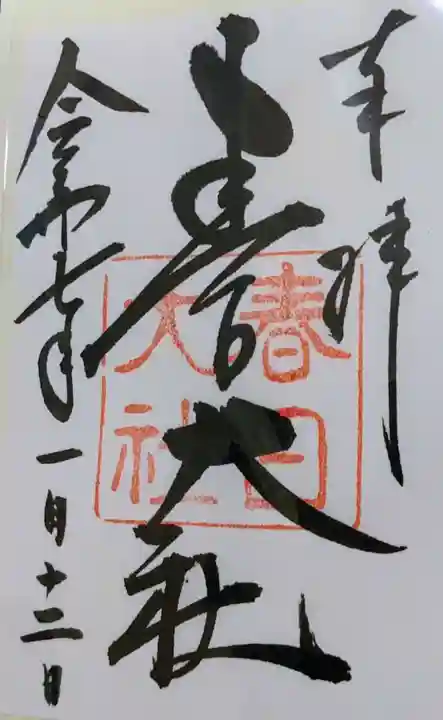 奉拝
春日大社
春日
大社
令和七年一月十三日